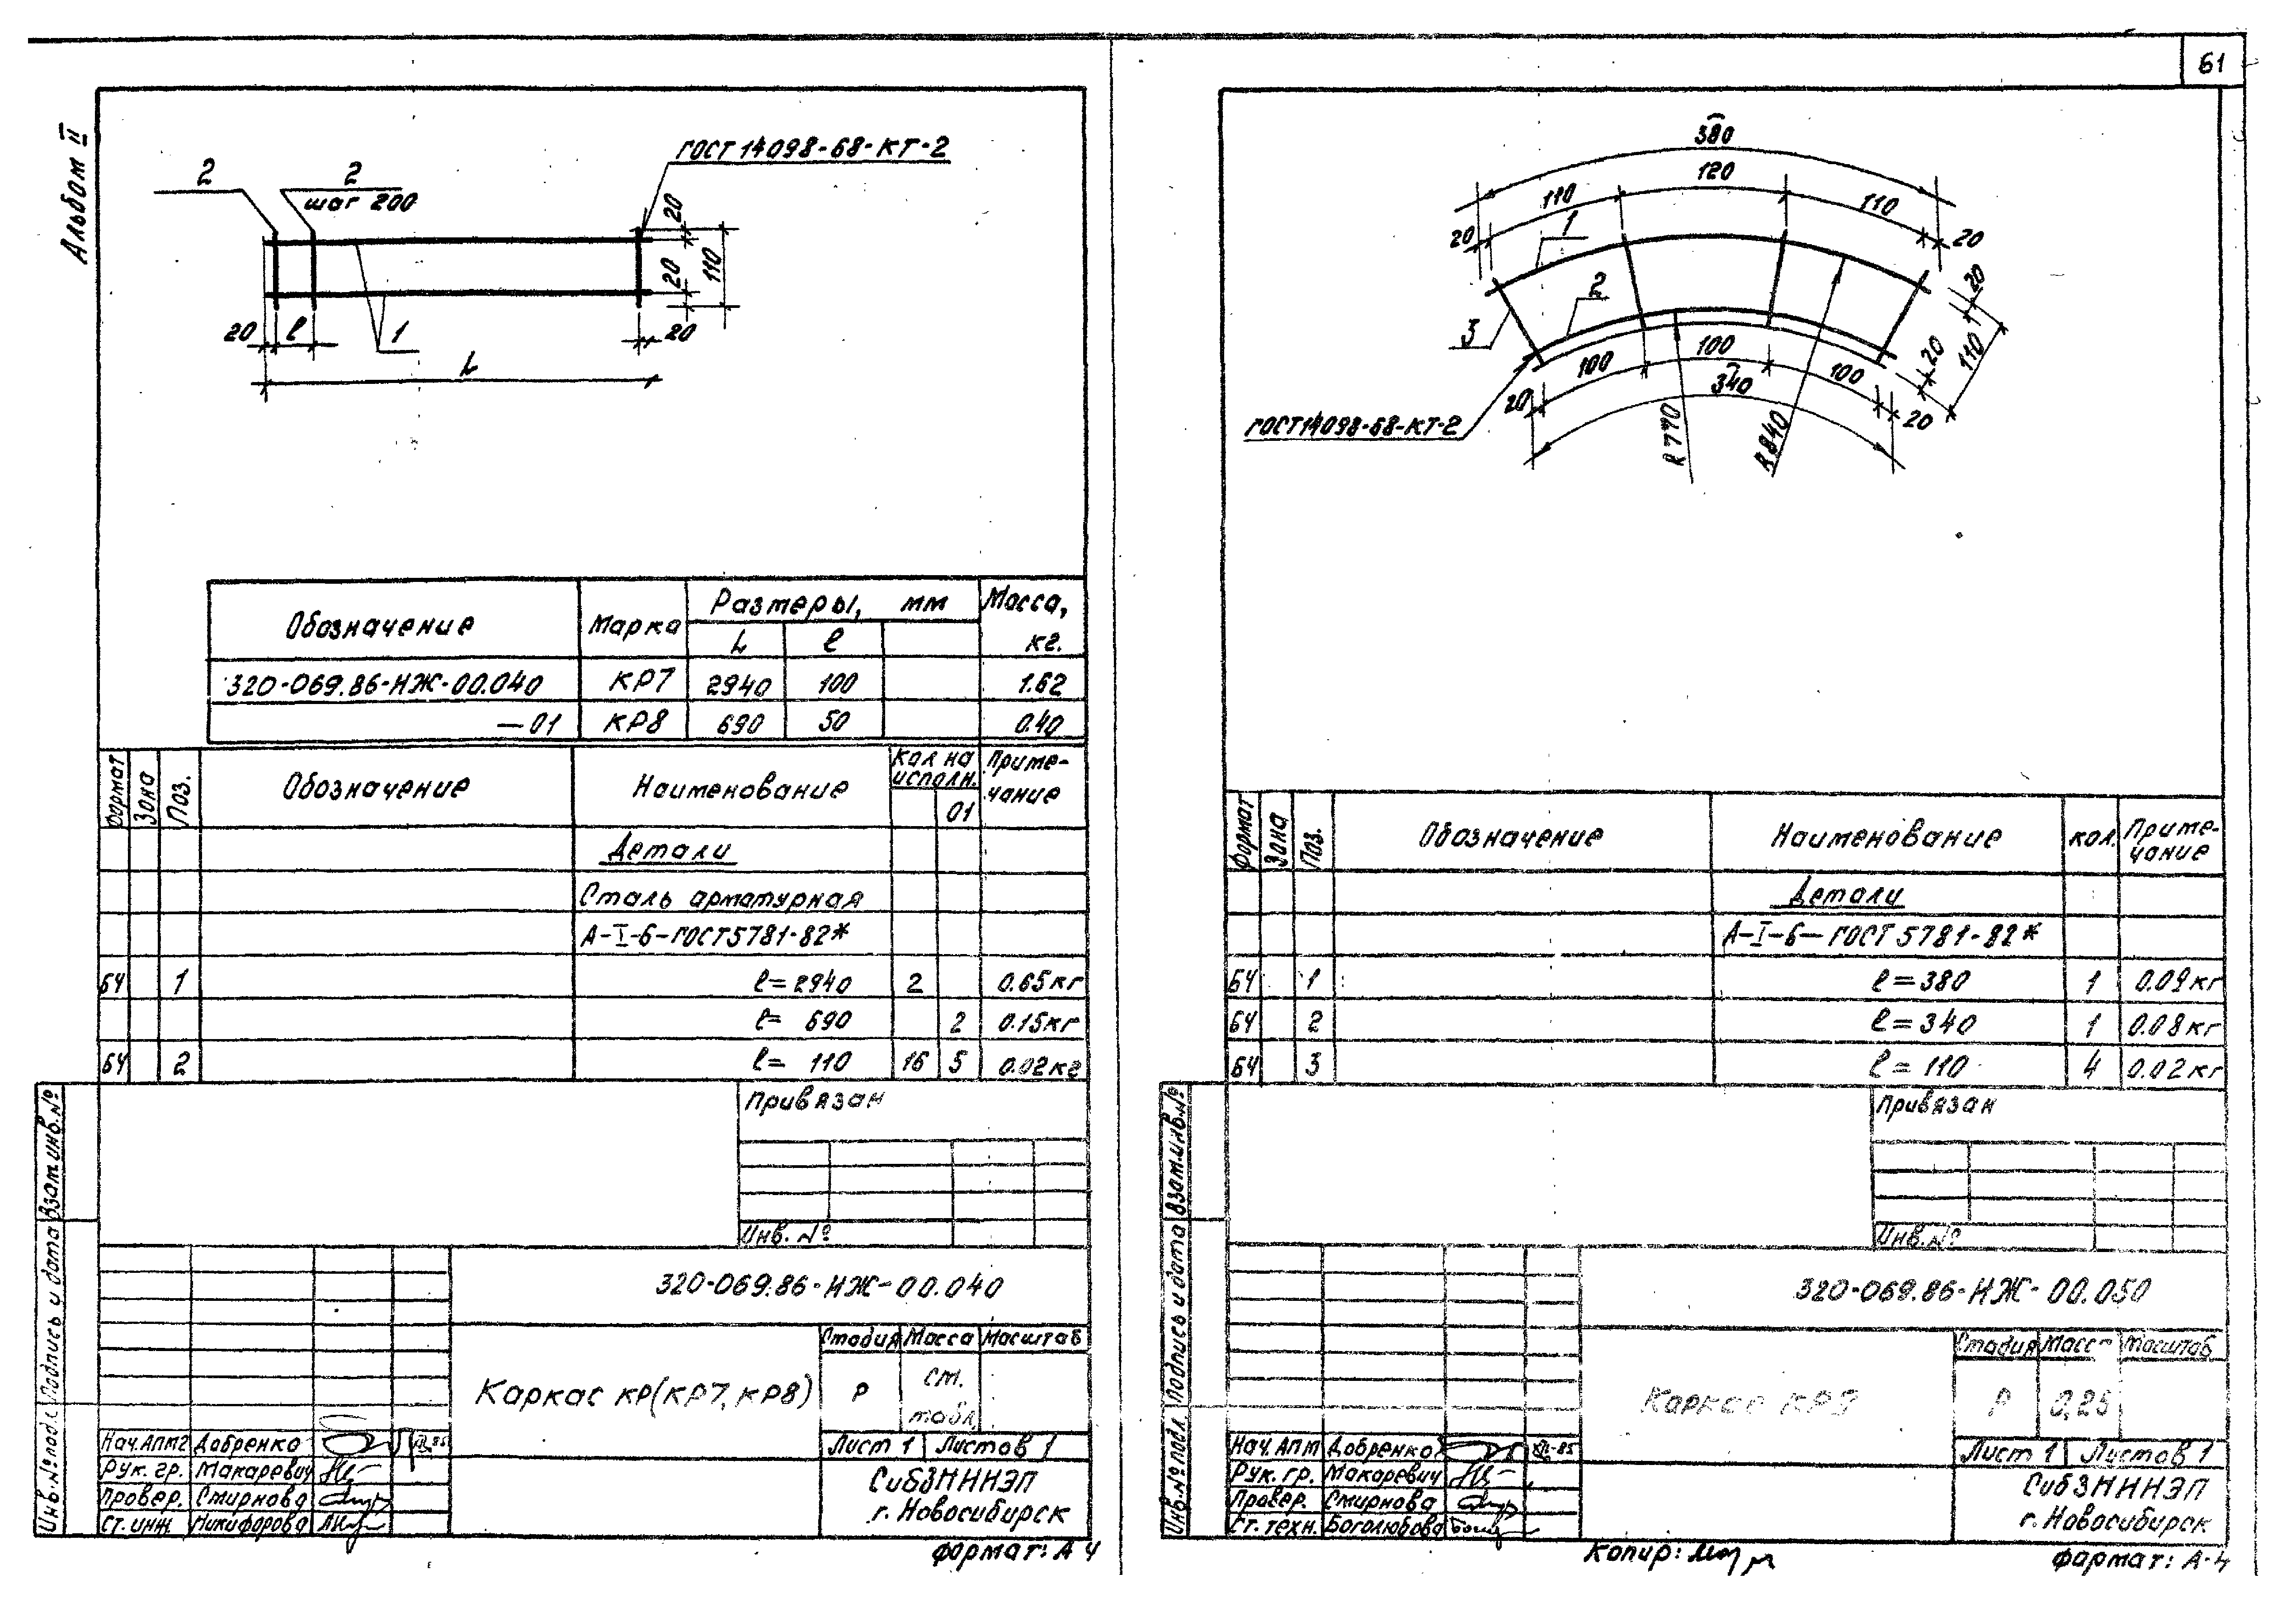 61
Альбом II
2
2
шаг 200
ГОСТ 14098-68-КТ-2
20
20
110
20
ℓ
1
20
L
Обозначение
Марка
Размеры, мм
Масса, кг.
L
ℓ
320-069.86-НЖ-00.040 КР7 2940 100 1.62
—01 КР8 690 50 0.40
Формат
Зона
Поз.
Обозначение
Наименование
Кол на исполн.
Приме-
чание
01
Детали
Сталь арматурная
А-I-6-ГОСТ5781-82*
БЧ 1 ℓ=2940 2 0.65кг
ℓ= 690 2 0.15кг
БЧ 2 ℓ= 110 16 5 0.02кг
Привязан
Инв. №
Взам.инв.№
Подпись и дата
Инв.№ под.
320-069.86-НЖ-00.040
Каркас КР(КР7, КР8)
Стадия Масса Масштаб
Р
см.
табл.
Лист 1 Листов 1
СибЗНИИЭП
г. Новосибирск
Нач.АПМ2 Добренко
Рук. гр. Макаревич
Провер. Смирнова
Ст. инж Никифорова
Формат: А 4
380
110
120
110
20
20
1
2
3
20
20
110
100
100
100
340
20
20
R770
R840
ГОСТ14098-68-КТ-2
Формат
Зона
Поз.
Обозначение
Наименование
Кол.
Приме-
чание
Детали
А-I-6-ГОСТ 5781-82*
БЧ 1 ℓ=380 1 0.09кг
БЧ 2 ℓ=340 1 0.08кг
БЧ 3 ℓ=110 4 0.02кг
Привязан
Инв.№
Взам.инв.№
Подпись и дата
Инв.№ подл.
320-069.86-НЖ-00.050
Каркас КР9
Стадия Масс Масштаб
Р 0,25
Лист 1 Листов 1
СибЗНИИЭП
г. Новосибирск
Нач. АПМ Добренко
Рук. гр. Макаревич
Провер. Смирнова
Ст. техн. Боголюбова
Копир:
Формат: А-4